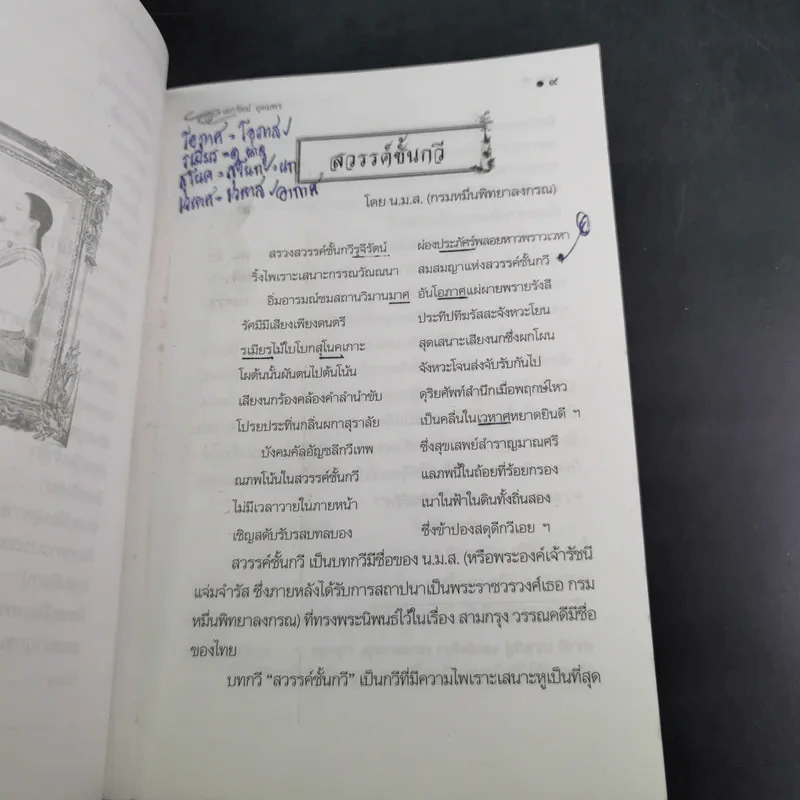 ๑๙
เอกรัตน์ อุดมพร
โอภาศ = โอภาส
รเมียร = ดู น่าดู
สุโนค = สุโนก/นก
เวหาศ = เวหาส/อากาศ
สวรรค์ชั้นกวี
โดย น.ม.ส. (กรมหมื่นพิทยาลงกรณ)
สรวงสวรรค์ชั้นกวีรุจีรัตน์ ผ่องประภัศร์พลอยหาวพราวเวหา
ริ้งไพเราะเสนาะกรรณวัณณนา สมสมญาแห่งสวรรค์ชั้นกวี
อิ่มอารมณ์ชมสถานวิมานมาศ อันโอภาศแผ่ผายพรายรังสี
รัศมีมีเสียงเพียงดนตรี ประทีปทีฆรัสสะจังหวะโยน
รเมียรไม้ใบโบกสุโนคเกาะ สุดเสนาะเสียงนกซึ่งผกโผน
โผต้นนั้นผันตนไปต้นโน้น จังหวะโจนส่งจับรับกันไป
เสียงนกร้องคล้องคำลำนำขับ ดุริยศัพท์สำนึกเมื่อพฤกษ์ไหว
โปรยประทิ่นกลิ่นผกาสุราลัย เป็นคลื่นในเวหาศหยาดยินดี ฯ
บังคมคัลอัญชลีกวีเทพ ซึ่งสุขเสพย์สำราญมาณศรี
ณภพโน้นในสวรรค์ชั้นกวี แลภพนี้ในถ้อยที่ร้อยกรอง
ไม่มีเวลาวายในภายหน้า เนาในฟ้าในดินทั้งถิ่นสอง
เชิญสดับรับรสบทลบอง ซึ่งข้าปองสดุดีกวีเอย ฯ
สวรรค์ชั้นกวี เป็นบทกวีมีชื่อของ น.ม.ส. (หรือพระองค์เจ้ารัชนี
แจ่มจำรัส ซึ่งภายหลังได้รับการสถาปนาเป็นพระราชวรวงศ์เธอ กรม
หมื่นพิทยาลงกรณ) ที่ทรงพระนิพนธ์ไว้ในเรื่อง สามกรุง วรรณคดีมีชื่อ
ของไทย
บทกวี “สวรรค์ชั้นกวี” เป็นกวีที่มีความไพเราะเสนาะหูเป็นที่สุด